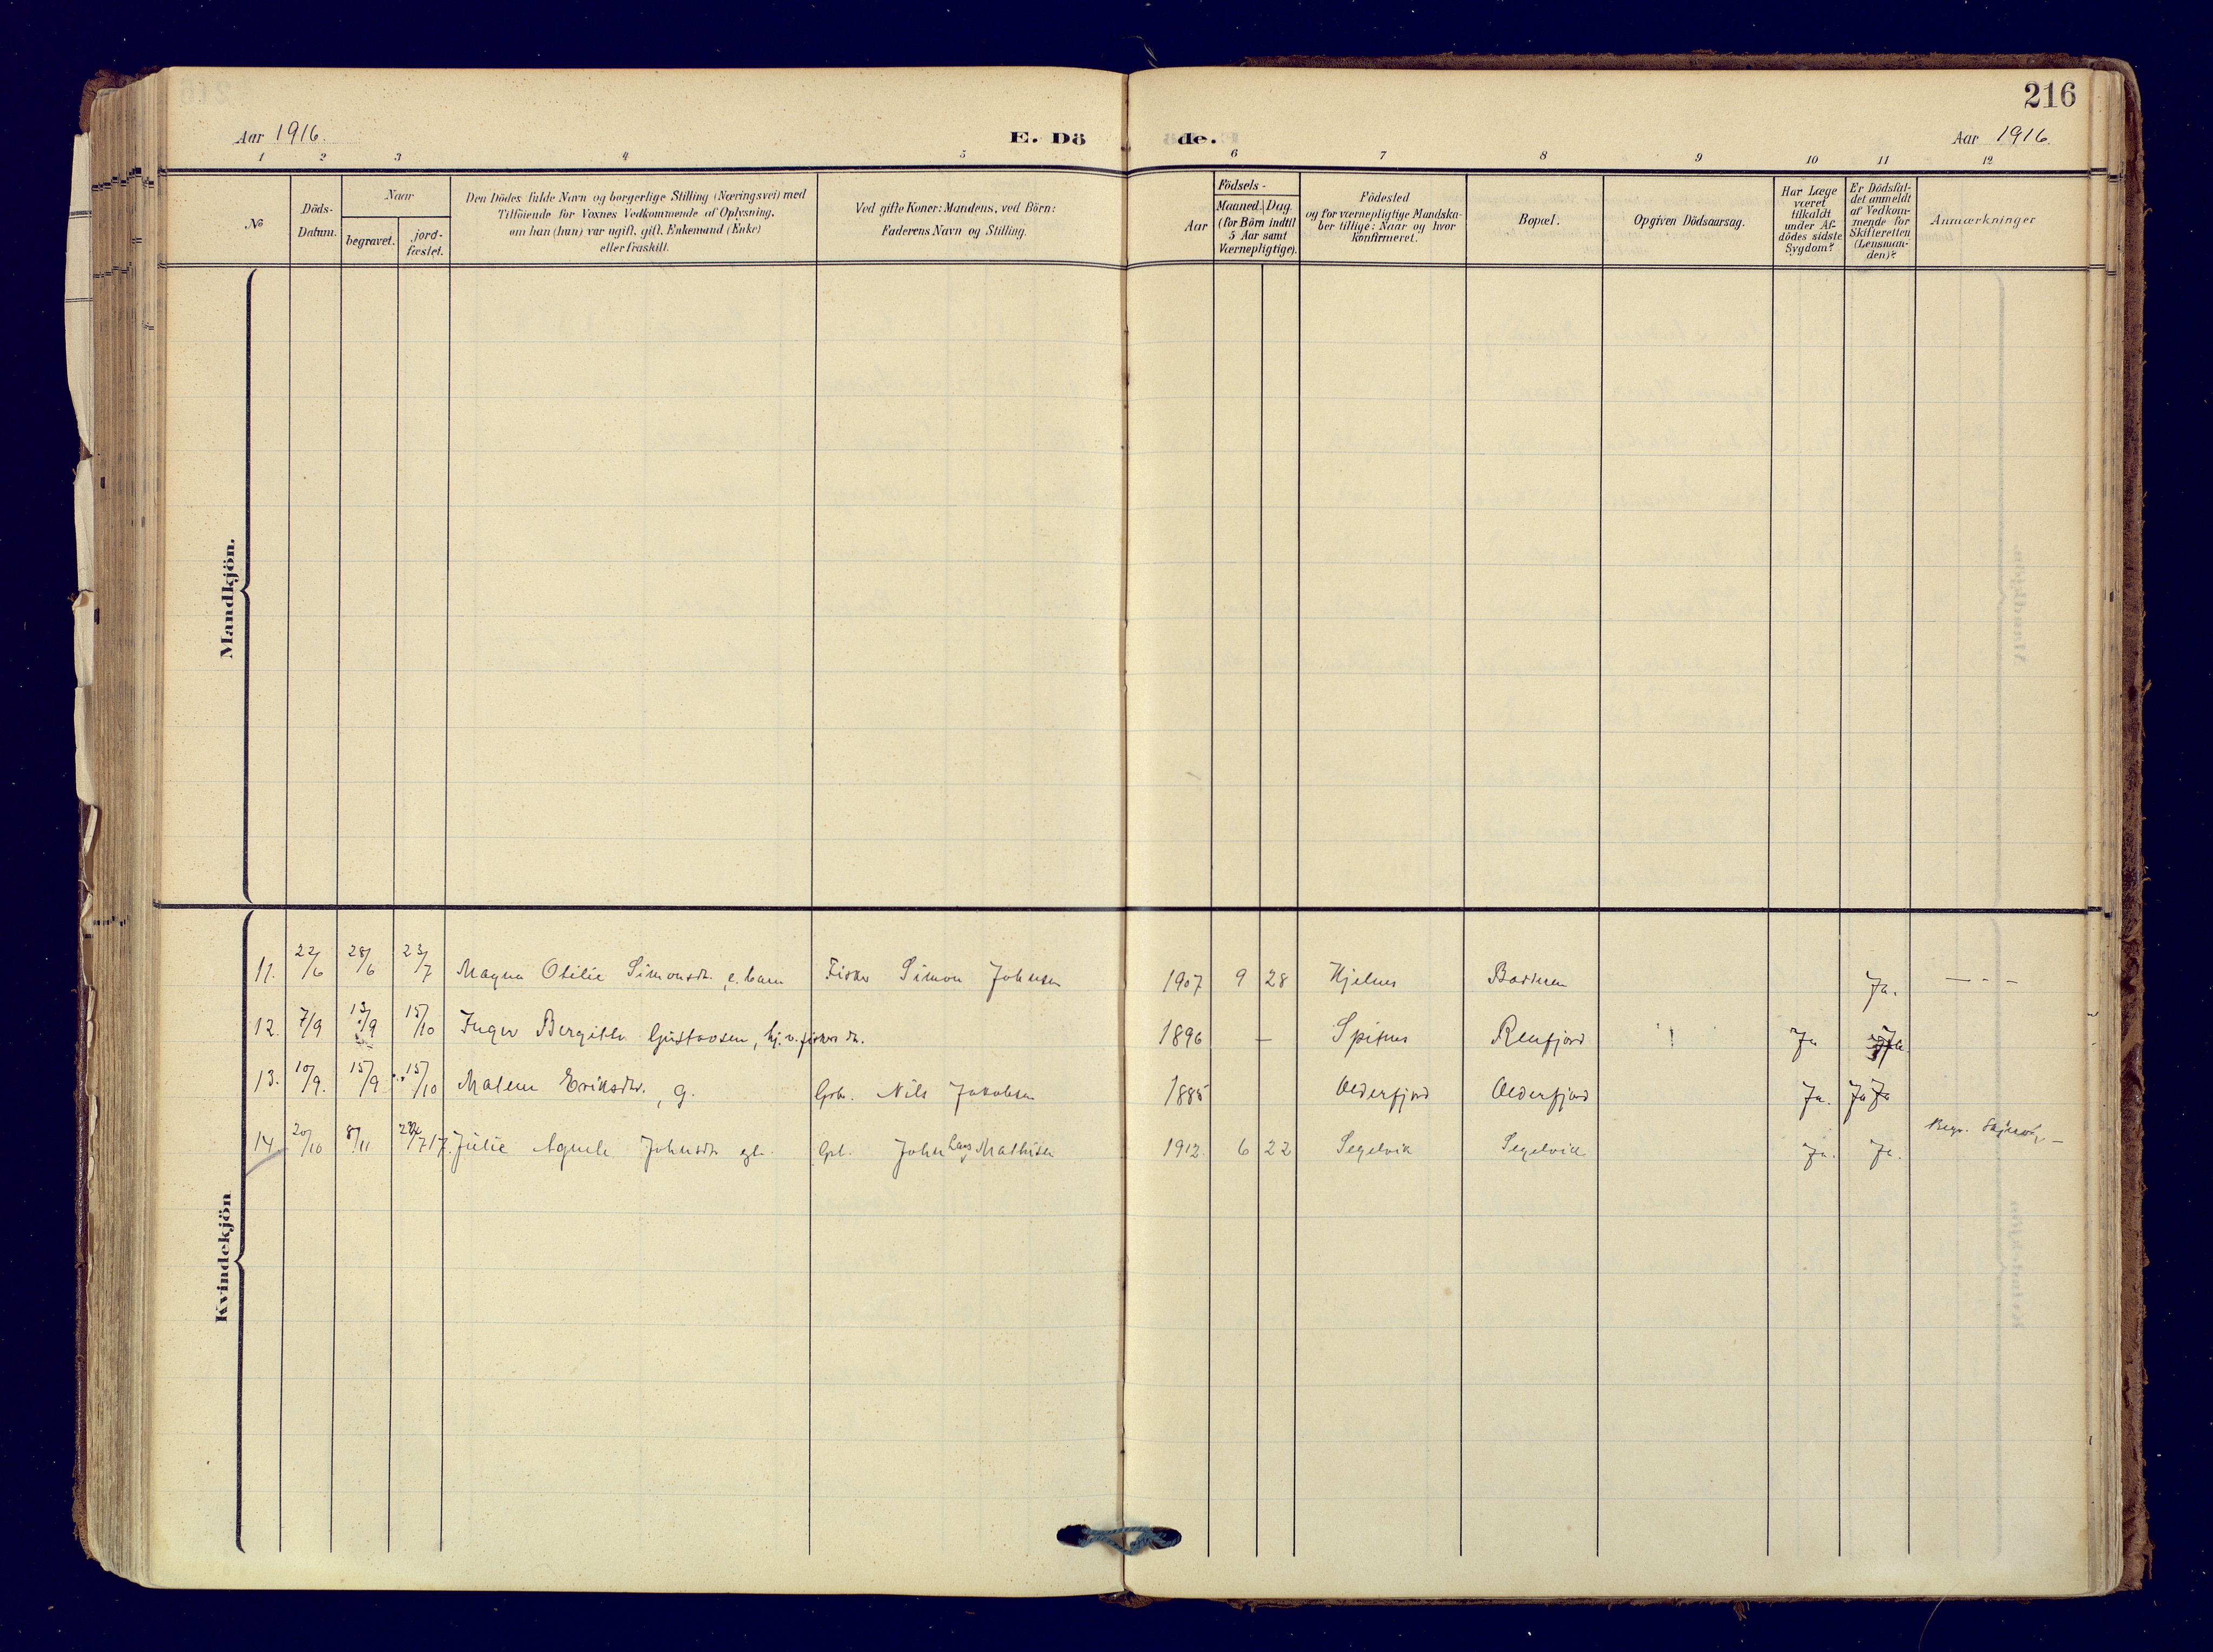 216
Aar 1916. E. Dö de. Aar 1916.
1 2 3 4 5 6 7 8 9 10 11 12
No
Döds-
Datum.
Naar
begravet.
jord-
fæstet.
Den Dödes fulde Navn og borgerlige Stilling (Næringsvei) med
Tilföiende for Voxnes Vedkommende af Oplysning,
om han (hun) var ugift, gift, Enkemand (Enke)
eller fraskilt.
Ved gifte Koner: Mandens, ved Börn:
Faderens Navn og Stilling.
Aar
Födsels-
Maaned. Dag.
(for Börn indtil
5 Aar samt
Værnepligtige).
Födested
og for værnepligtige Mandska-
ber tillige: Naar og hvor
konfirmeret.
Bopæl.
Opgiven Dödsaarsag.
Har Læge
været
tilkaldt
under Af-
dödes sidste
Sygdom?
Er Dödsfal-
det anmeldt
af Vedkom-
mende for
Skifteretten
(Lensman-
den)?
Anmærkninger
Mandkjön.
Kvindekjön
11. 22/6 28/6 23/7 Magna Otilie Simonsdtr., e. barn Fisker Simon Johnsen 1907 9 28 Hjelnes Ja. — - -
12. 7/9 13/9 15/10 Inger Bergithe Gustavsen, hj.v. fiskers dtr. 1896 — Spitnes Renfjord Ja Ja
13. 10/9. 15/9 15/10 Malene Eriksdtr., g. Gbr. Nils Jakobsen 1885 Olderfjord Olderfjord Ja. Ja Ja
14. 20/10 8/11 7 17. Julie Agnete Johnsdtr. Gbr. John Lars Mathisen 1912. 6 22 Segelvik Segelvik Ja. Ja. Begr.